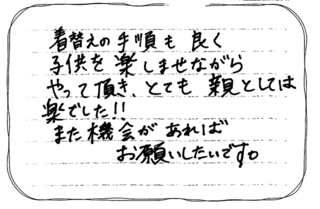 着替えの手順も良く
子供を楽しませながら
やって頂き、とても 親としては
楽でした!!
また機会があれば
お願いしたいです。